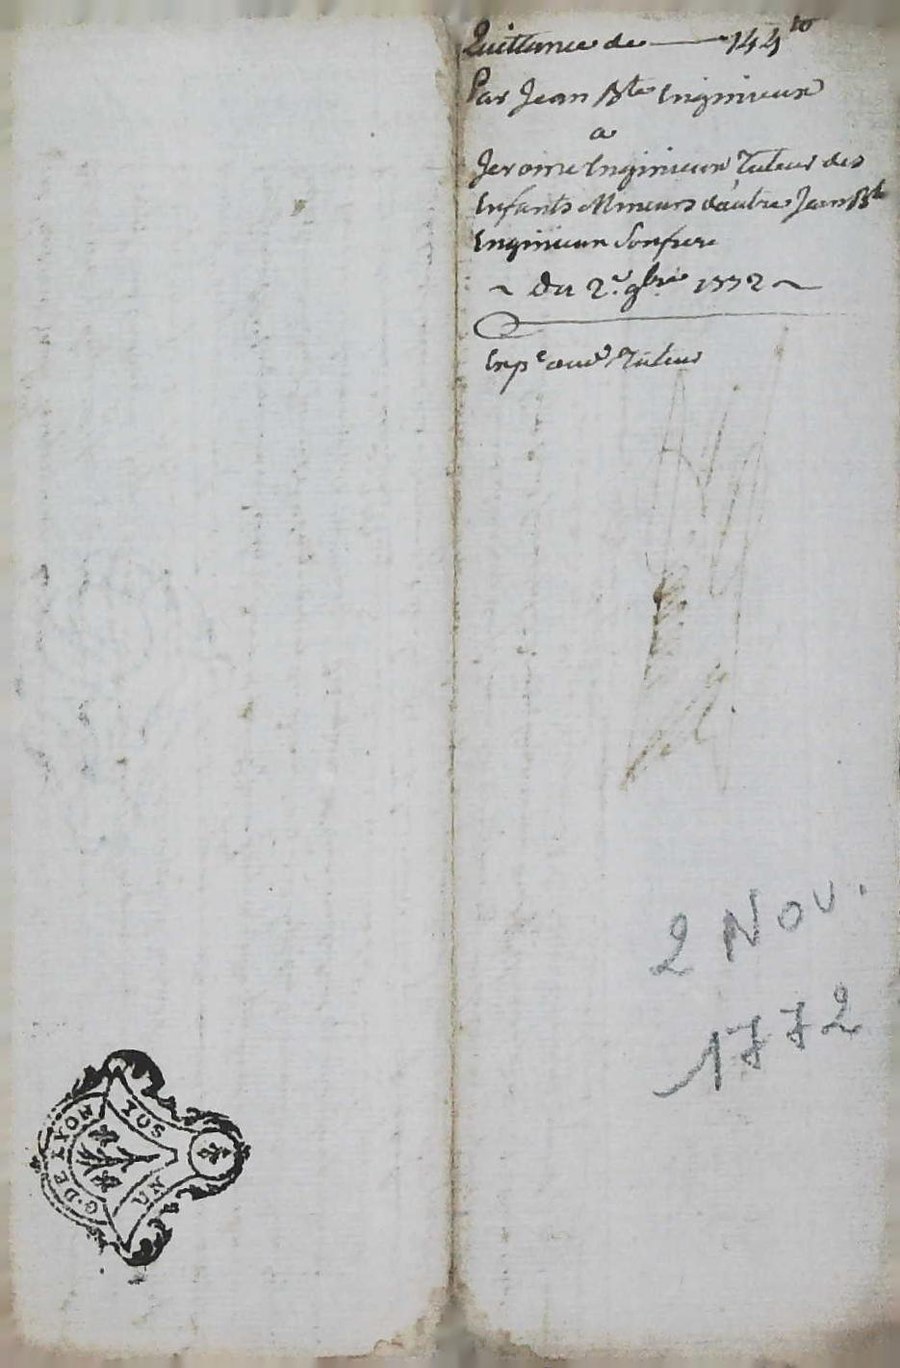 Quittance de — 144 ₶
Par Jean Bte Inginieux
a
Jerome Inginieux Tuteur des
Enfants Mineurs d'autre Jean Bte
Inginieux Son frere
~ du 2e. 9bre 1772 ~
Exp.e aud. Tuteur
2 Nov.
1772
G. DE LYON
UN
SOL